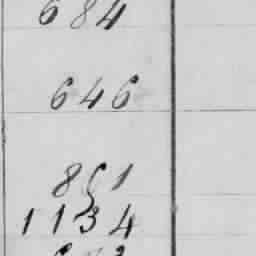 684
646
861
1134